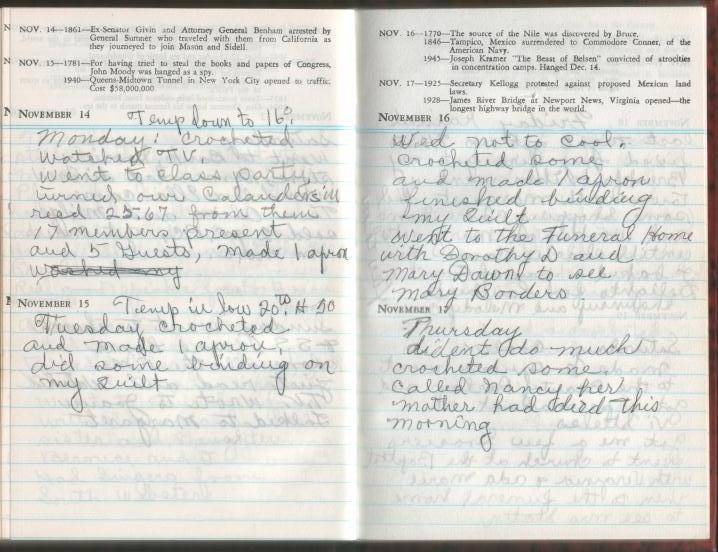 N NOV. 14—1861—Ex-Senator Givin and Attorney General Benham arrested by
General Sumner who traveled with them from California as
they journeyed to join Mason and Sidell.
N NOV. 15—1781—For having tried to steal the books and papers of Congress,
John Moody was hanged as a spy.
1940—Queens-Midtown Tunnel in New York City opened to traffic.
Cost $58,000,000
NOVEMBER 14 Temp down to 16°
Monday: Crocheted
watched T.V.
went to class party
turned our Calandars in
recd 25.67 from them
17 members present
and 5 Guests, made 1 apron
washed my
NOVEMBER 15 Temp in low 20ts H 50
Tuesday crocheted
and made 1 apron,
did some binding on
my Quilt
NOV. 16—1770—The source of the Nile was discovered by Bruce.
1846—Tampico, Mexico surrendered to Commodore Conner, of the
American Navy.
1945—Joseph Kramer "The Beast of Belsen" convicted of atrocities
in concentration camps. Hanged Dec. 14.
NOV. 17—1925—Secretary Kellogg protested against proposed Mexican land
laws.
1928—James River Bridge at Newport News, Virginia opened—the
longest highway bridge in the world.
NOVEMBER 16
Wed not to Cool.
Crocheted some
and made 1 apron
finished binding
my Quilt
went to the Funeral Home
with Dorothy D and
Mary Dawn to see
Mary Borders
NOVEMBER 17
Thursday
dident do much
crocheted some.
Called Nancy her
mother had died this
morning